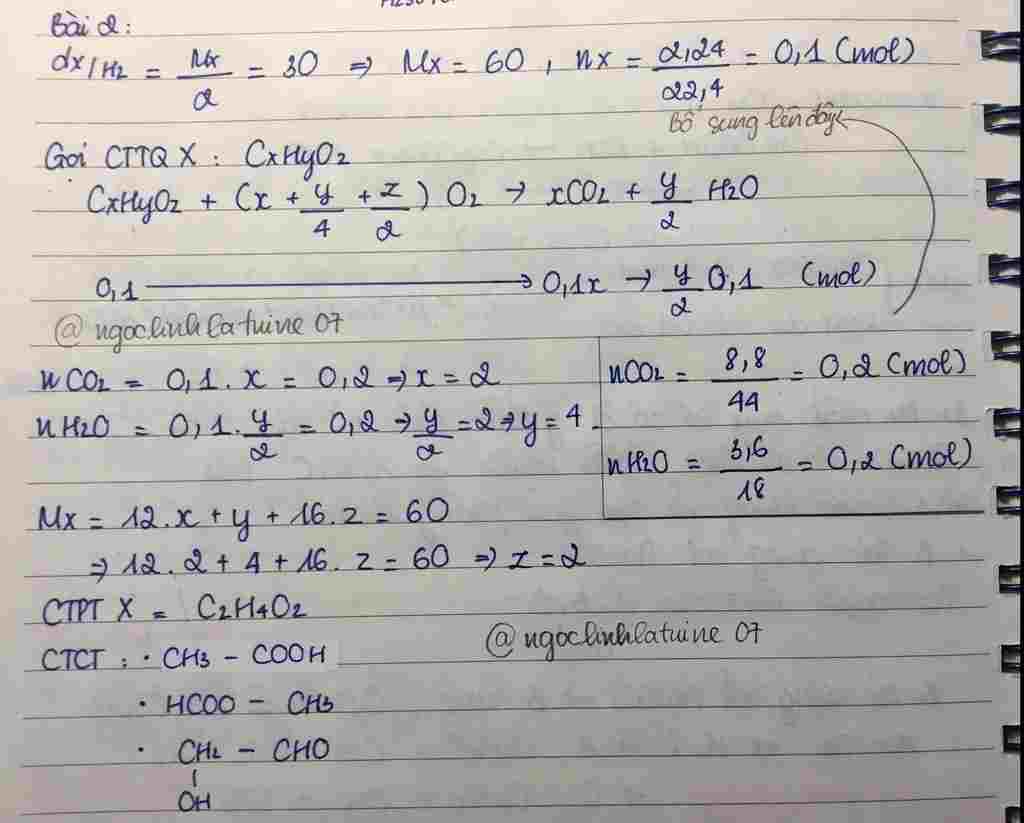 Bài 2:
dX/H2 = Mx/2 = 30 => Mx = 60, nx = 2,24/22,4 = 0,1 (mol)
Bổ sung lên đây
Gọi CTTQ X: CxHyO2
CxHyO2 + (x + y/4 + z/2) O2 → xCO2 + y/2 H2O
0,1 → 0,1x → y/2 0,1 (mol)
@ngoclinhlatuine 07
nCO2 = 0,1.x = 0,2 => x = 2
nH2O = 0,1.y/2 = 0,2 => y/2 = 2 => y = 4
nCO2 = 8,8/44 = 0,2 (mol)
nH2O = 3,6/18 = 0,2 (mol)
Mx = 12.x + y + 16.z = 60
=> 12.2 + 4 + 16.z = 60 => z = 2
CTPT X = C2H4O2
@ngoclinhlatuine 07
CTCT: · CH3 - COOH
· HCOO - CH3
· CH2 - CHO
OH